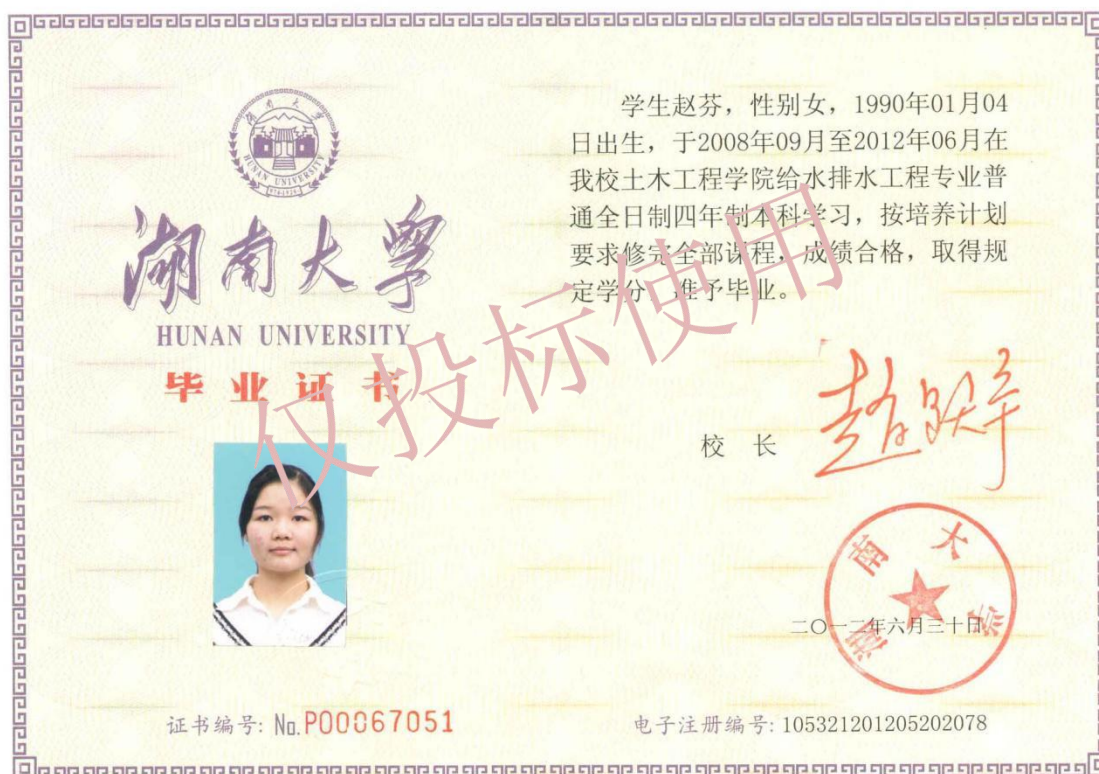 湖南大学
HUNAN UNIVERSITY
湖南大学
HUNAN UNIVERSITY
毕业证书
证书编号: No.P00067051
学生赵芬，性别女，1990年01月04
日出生，于2008年09月至2012年06月在
我校土木工程学院给水排水工程专业普
通全日制四年制本科学习，按培养计划
要求修完全部课程，成绩合格，取得规
定学分，准予毕业。
校 长
湖南大学
二〇一二年六月三十日
电子注册编号: 105321201205202078
仅投标使用